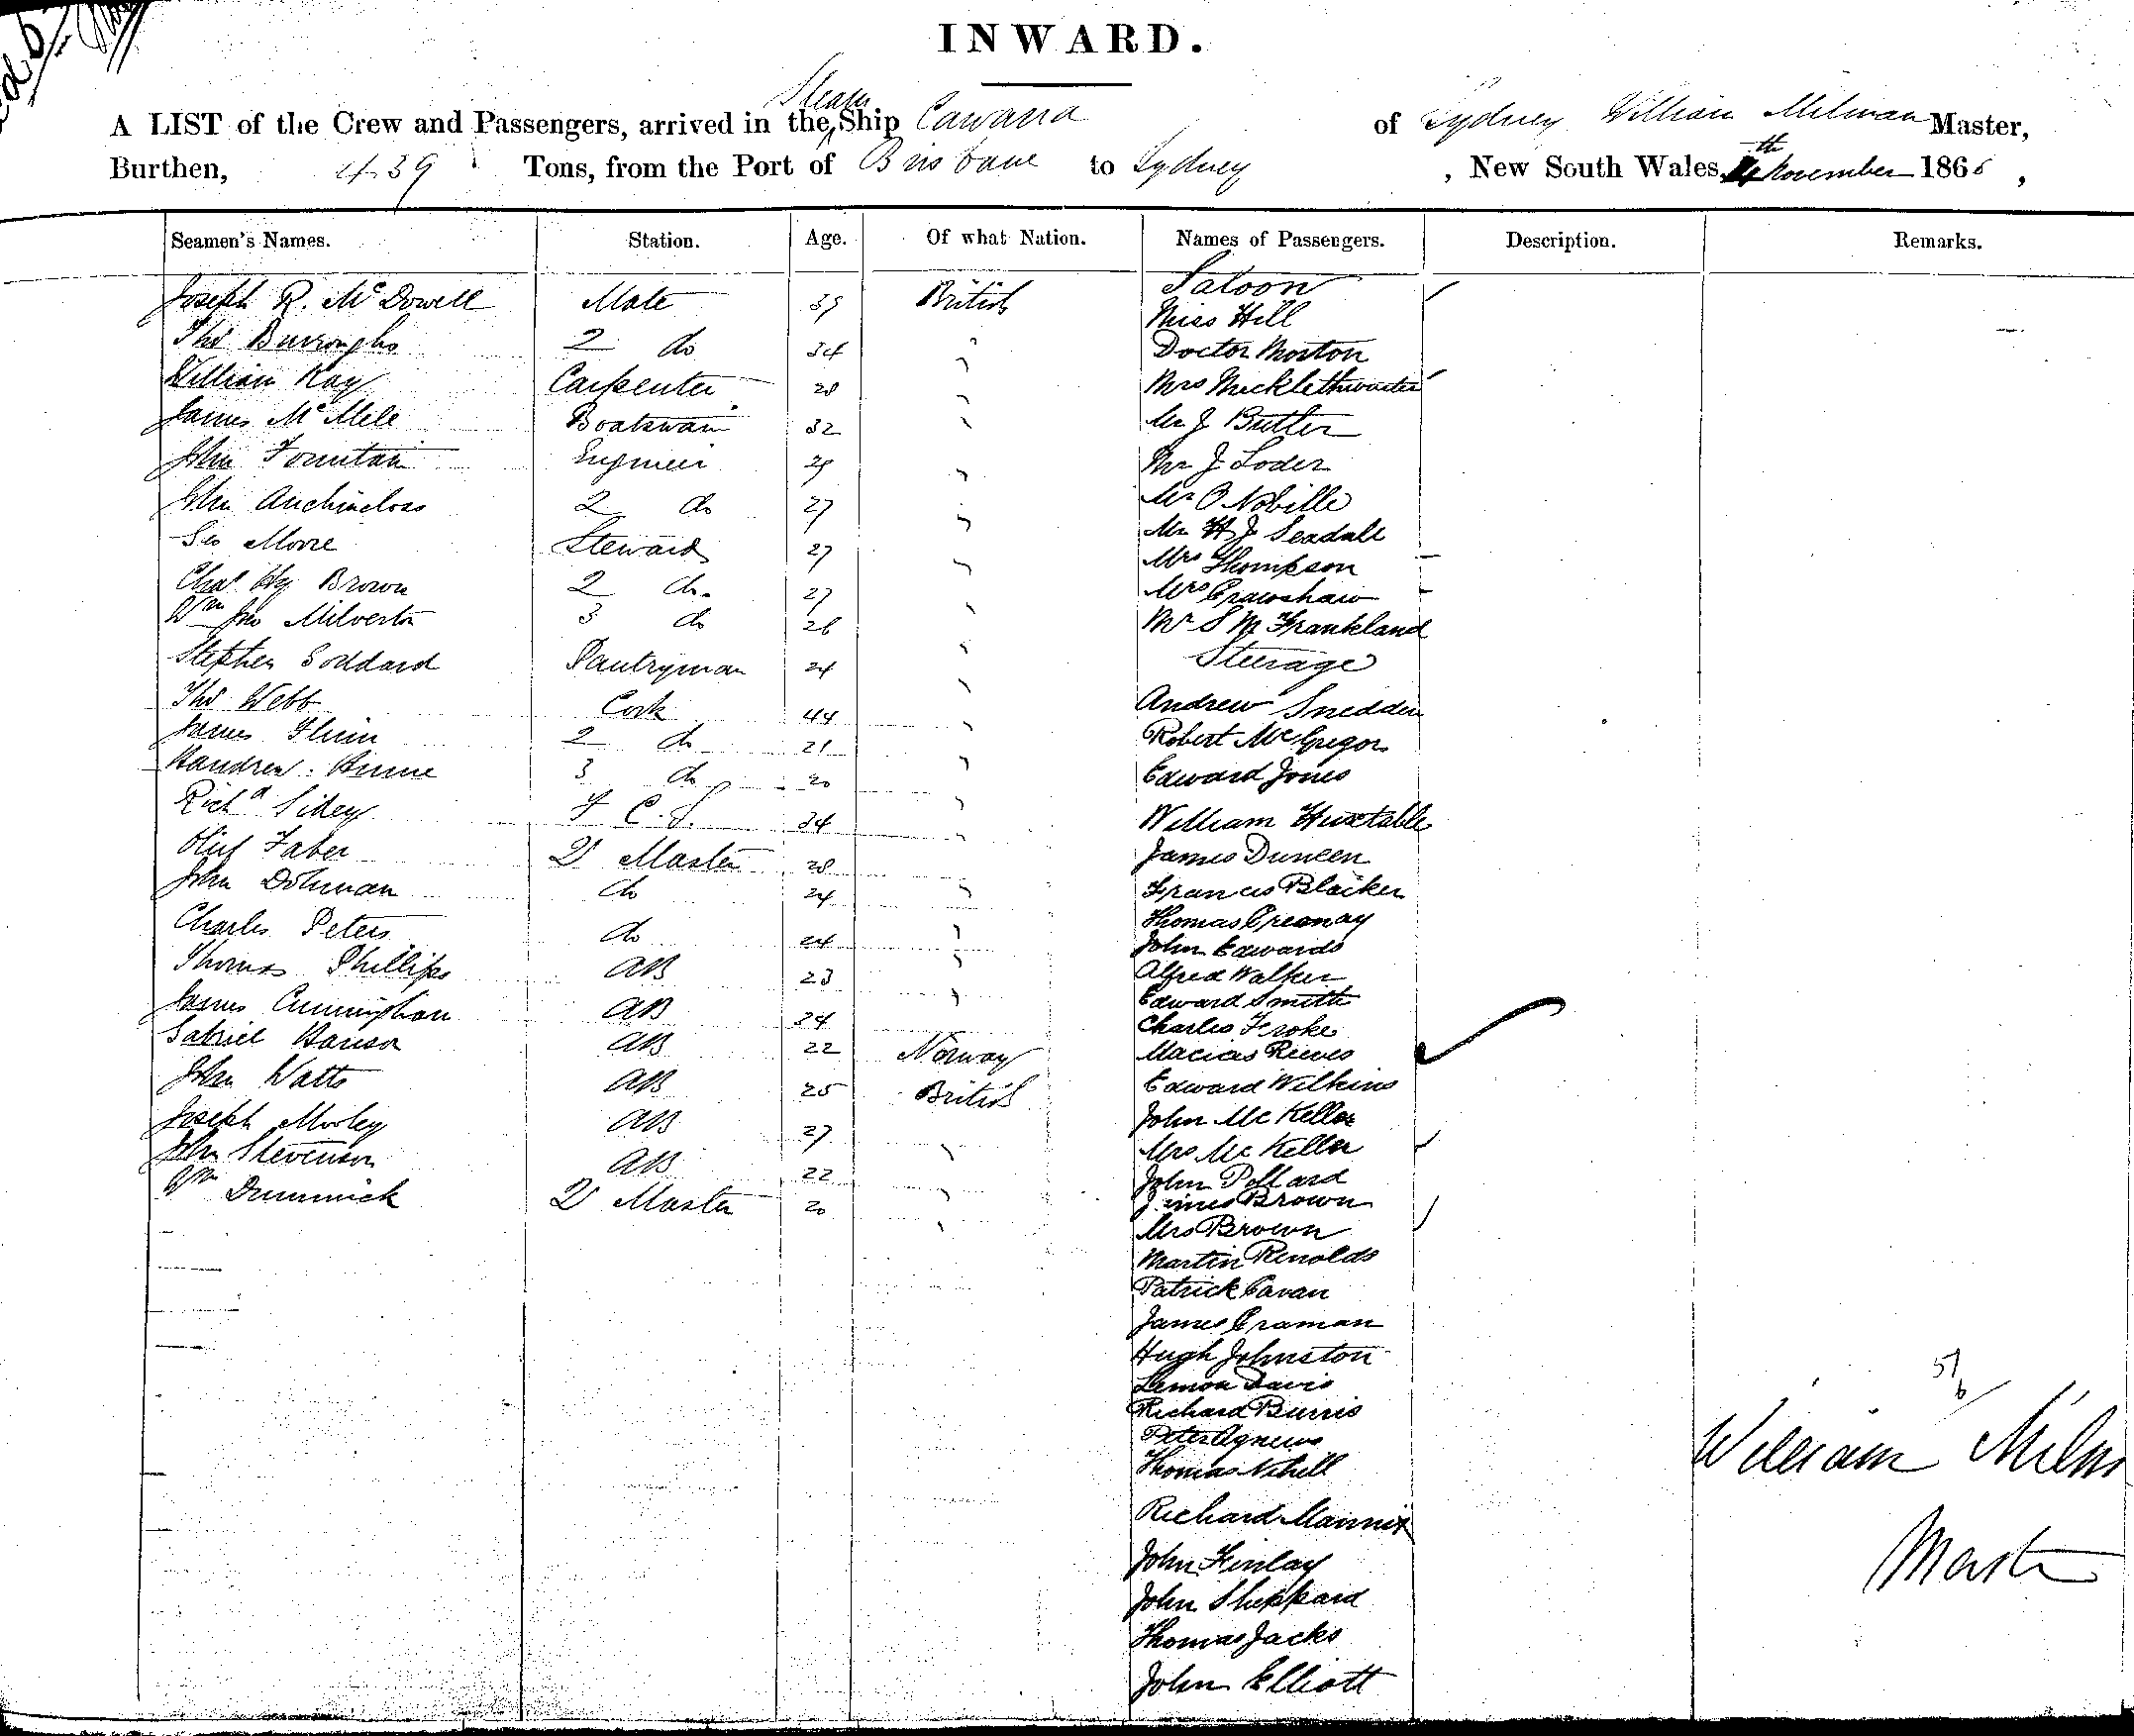 INWARD.
Steam
A LIST of the Crew and Passengers, arrived in the Ship Cawarra of Sydney William Milman Master,
Burthen, 439 Tons, from the Port of Brisbane to Sydney , New South Wales, 4th November 1865 ,
Seamen's Names. Station. Age. Of what Nation. Names of Passengers. Description. Remarks.
Saloon
Joseph R. McDowell Mate 39 British Miss Hill
Thos Burroughs 2 do 34 Doctor Morton
William Kay Carpenter 28 Mrs Micklethwaite
James McMele Boatswain 32 Mr J Butler
John Fountain Engineer 29 Mr J Loder
John Auchincloss 2 do 27 Mr O Nobille
Geo Moore Steward 27 Mr H J Seadall
Mrs Thompson
Chas Hy Brown 2 do 27 Mrs Crawshaw
Wm Jno Milverton 3 do 26 Mr S M Frankland
Stephen Goddard Pantryman 24 Steerage
Thos Webb Cook 44 Andrew Snedden
James Flinn 2 do 21 Robert McGregor
3 do 20 Edward Jones
Richd Sidey F C S 34 William Huxtable
Olief Faber Qr Master 28 James Duncen
John Dohman do 24 Francis Blaiker
Thomas Greanay
Charles Peters do 24 John Edwards
Thomas Phillips AB 23 Alfred Walker
Edward Smith
James Cunningham AB 24 Charles Froke
Gabriel Hanson AB 22 Norway Macias Rieves
John Watts AB 25 British Edward Wilkins
Joseph Morley AB 27 John McKellar
John Stevenson AB 22 Mrs McKellar
John Pollard
Wm Dummick Qr Master 20 James Brown
Mrs Brown
Martin Renolds
Patrick Cavan
James Craman
Hugh Johnston
Lemon Davis
Richard Burris
Peter Agnews
Thomas Nihill
Richard Mannix
John Finlay
John Sheppard
Thomas Jacks
John Elliott
57
6
William Milm
Master